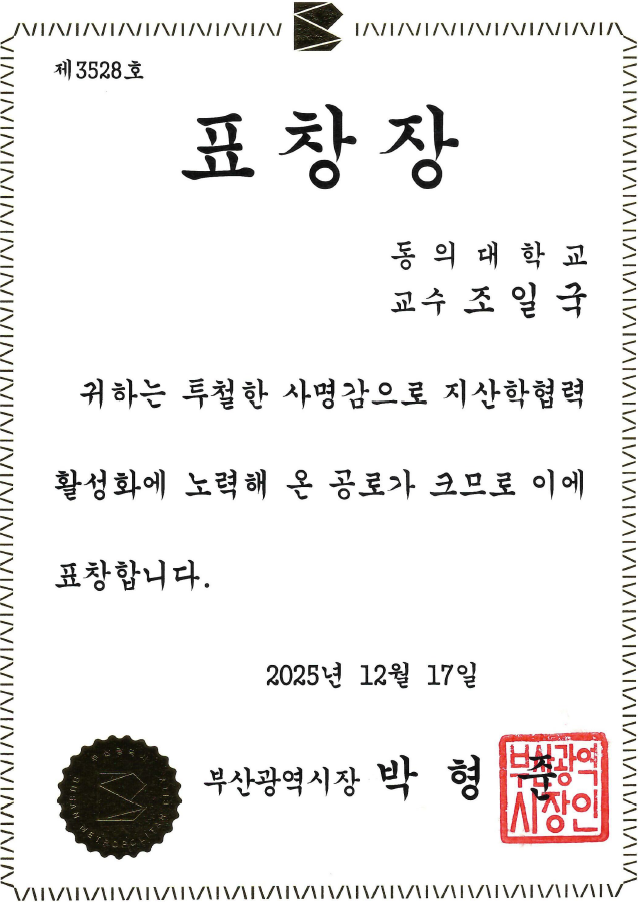 제3528호
표창장
동의대학교
교수 조일국
귀하는 투철한 사명감으로 지산학협력
활성화에 노력해 온 공로가 크므로 이에
표창합니다.
2025년 12월 17일
부산광역시장 박형준
부산광역
시장인
BUSAN METROPOLITAN CITY